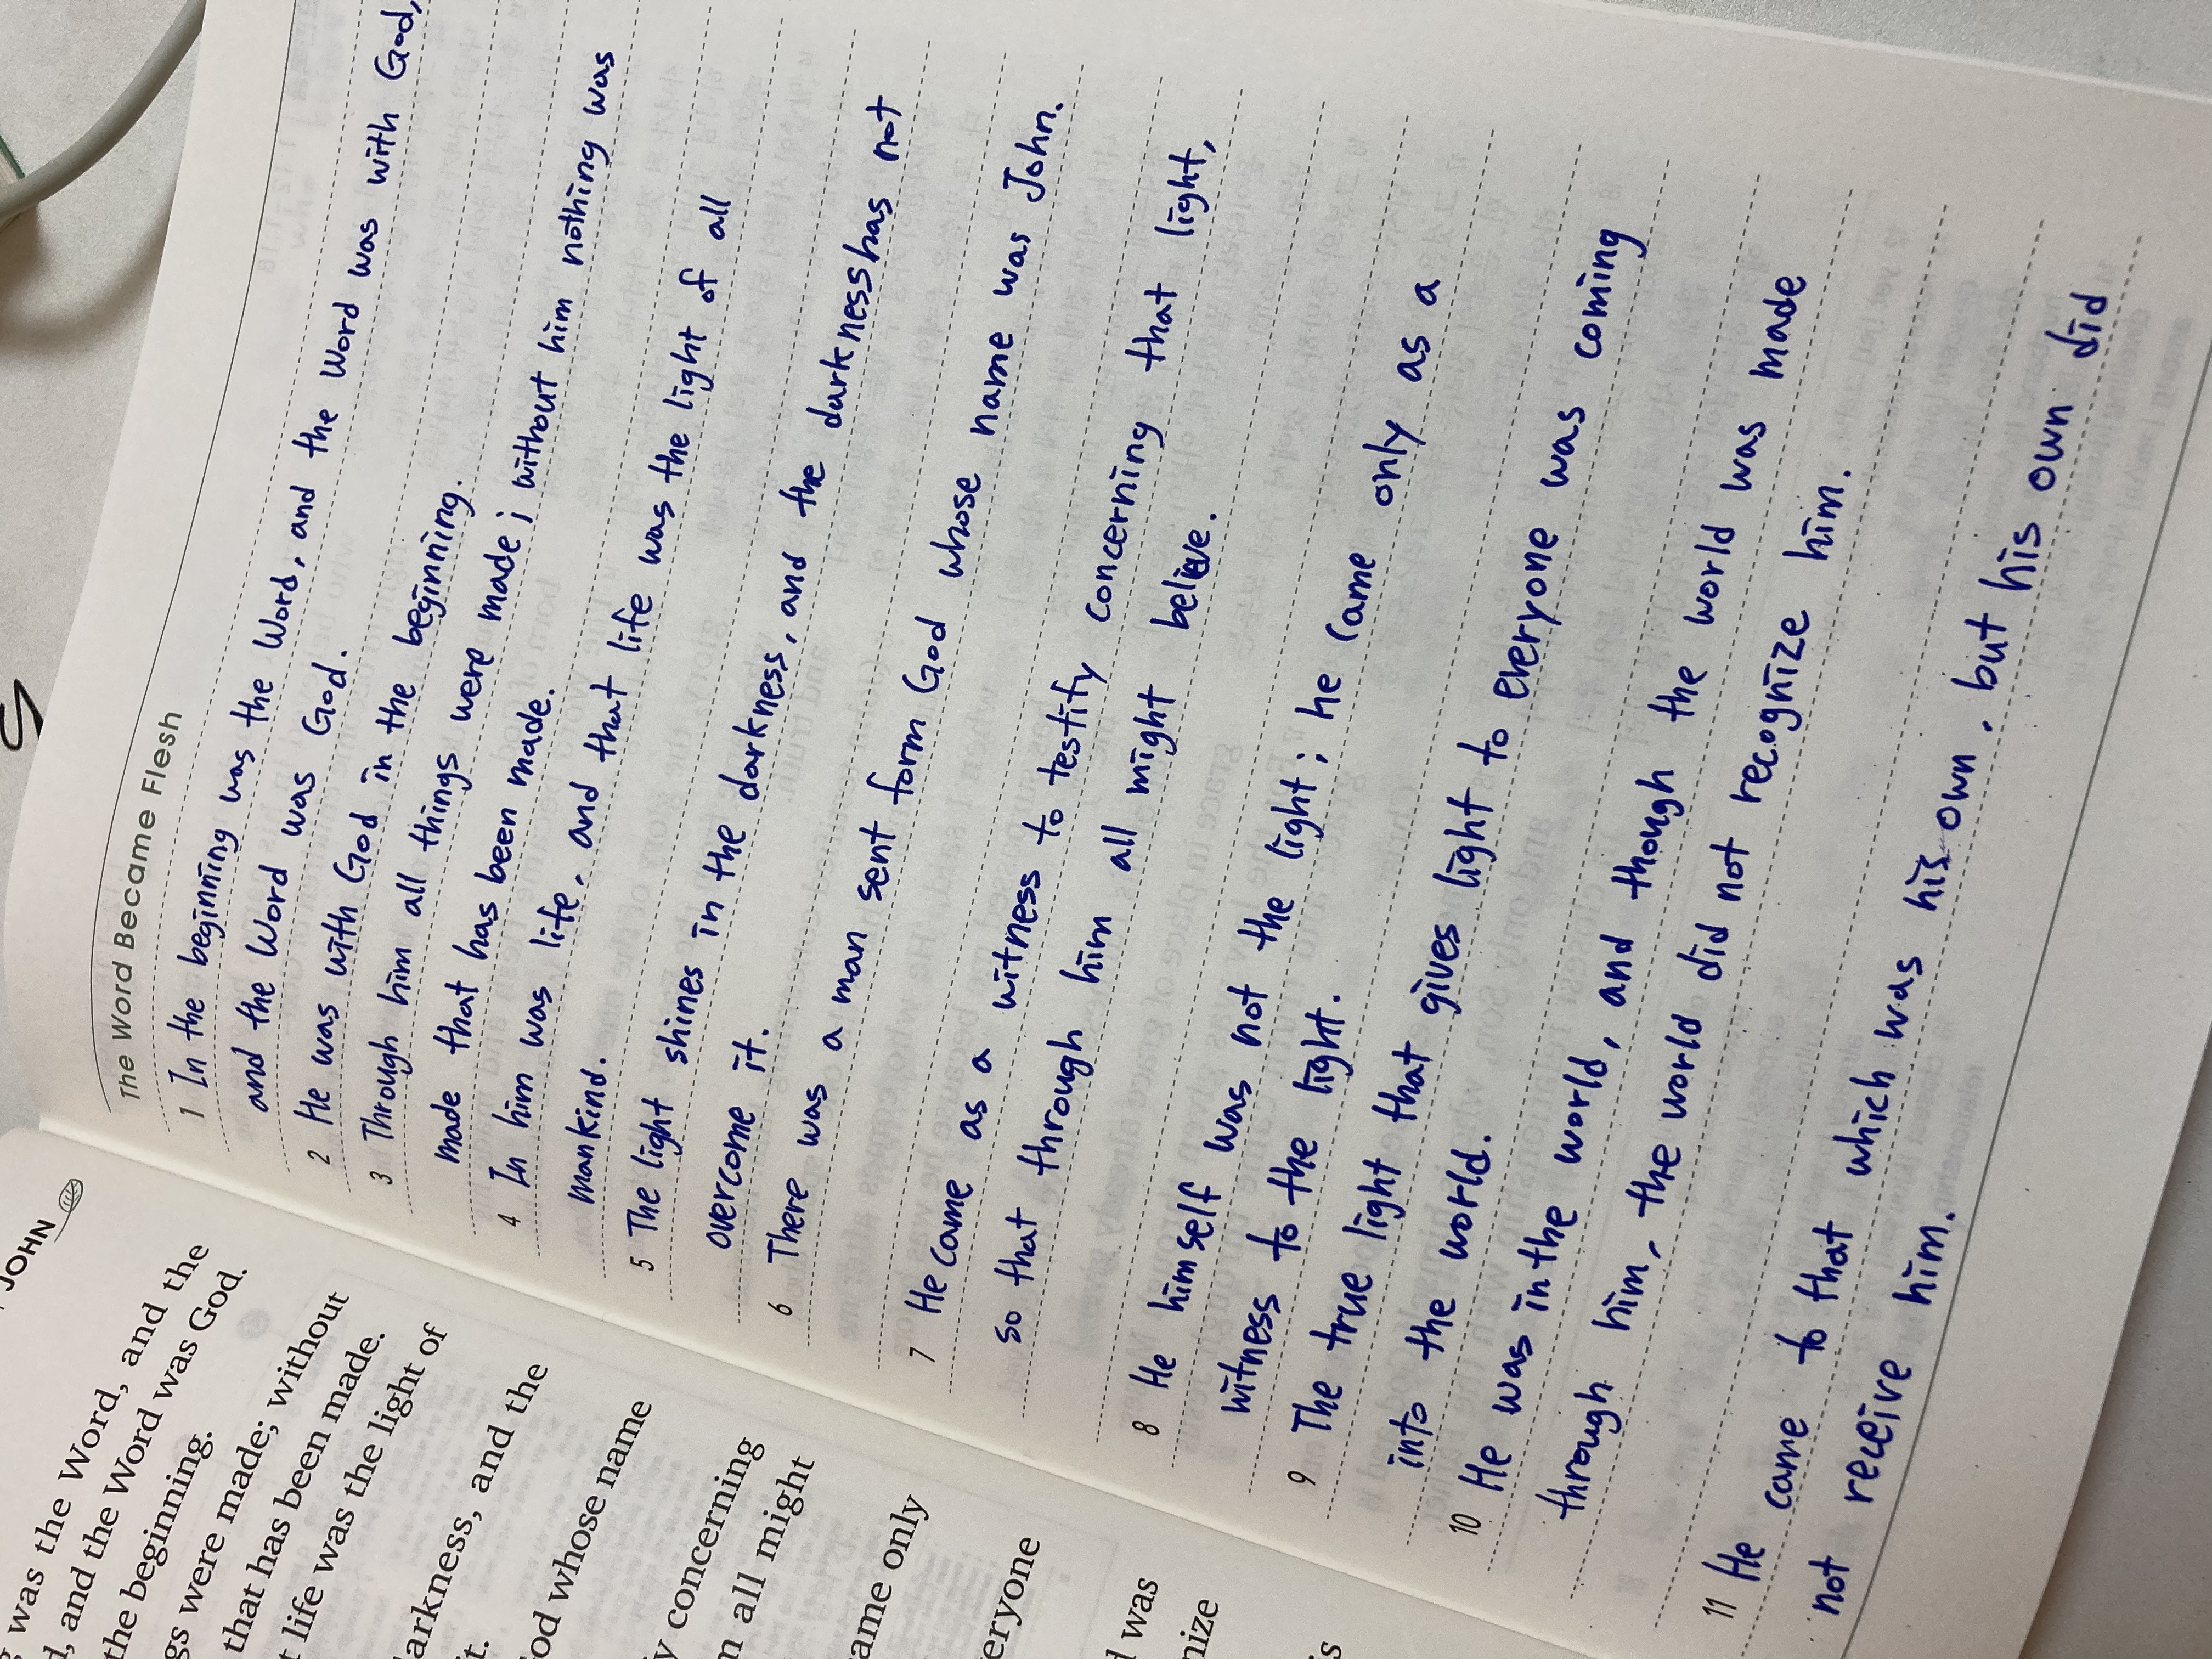 JOHN
was the Word, and the
, and the Word was God.
the beginning.
gs were made; without
that has been made.
life was the light of
arkness, and the
it.
od whose name
y concerning
m all might
ame only
eryone
was
nize
is
The Word Became Flesh
1 In the beginning was the Word, and the Word was with God,
and the Word was God.
2 He was with God in the beginning.
3 Through him all things were made; without him nothing was
made that has been made.
4 In him was life, and that life was the light of all
mankind.
5 The light shines in the darkness, and the darkness has not
overcome it.
6 There was a man sent form God whose name was John.
7 He came as a witness to testify concerning that light,
so that through him all might believe.
8 He himself was not the light; he came only as a
witness to the light.
9 The true light that gives light to everyone was coming
into the world.
10 He was in the world, and though the world was made
through him, the world did not recognize him.
11 He came to that which was his own, but his own did
not receive him.